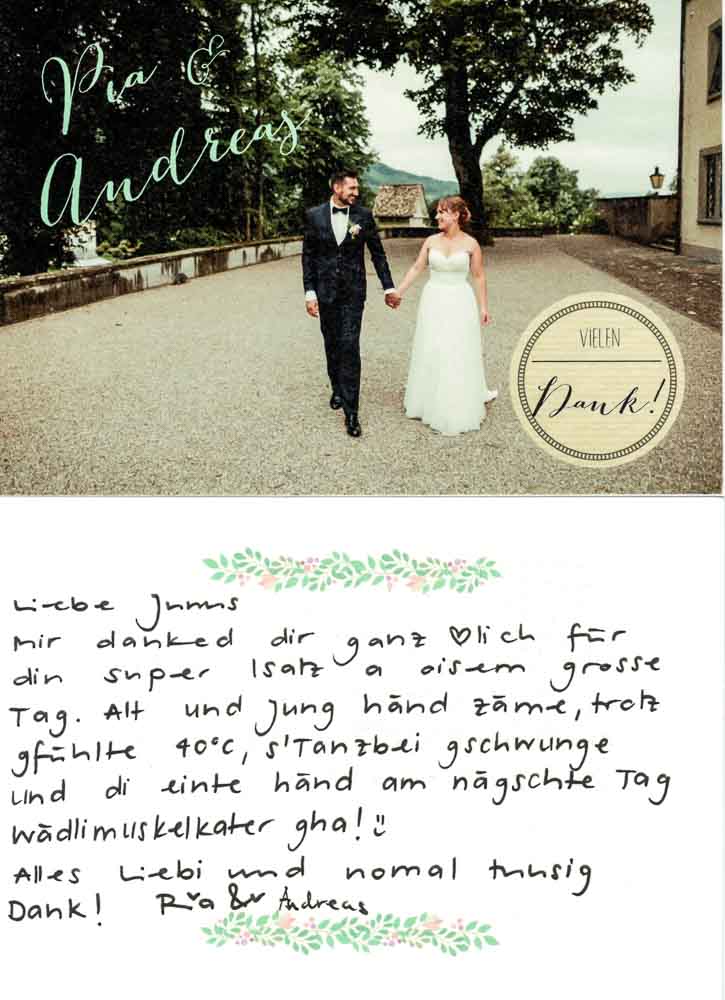 Pia &
Andreas
VIELEN
Dank!
Liebe Junus
Mir danked dir ganz ♡lich für
din super Isatz a oisem grosse
Tag. Alt und Jung händ zäme, trotz
gfühlte 40°C, s'Tanzbei gschwunge
und di einte händ am nägschte Tag
Wädlimuskelkater gha! :)
Alles Liebi und nomal tuusig
Dank! Pia & Andreas